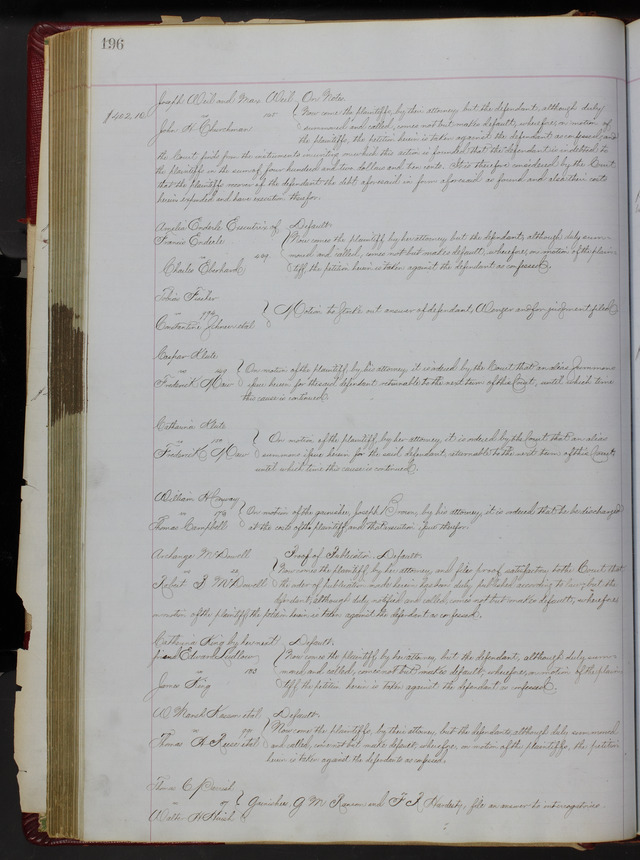 196
Joseph Weil and Max Weil, On Note.
$402.10 vs 105 Now come the plaintiffs, by their attorney but the defendant, although duly
John H. Churchman summoned and called, comes not but makes default, wherefore, on motion of
the plaintiffs, the petition herein is taken against the defendant as confessed, and
the Court finds from the instruments in writing on which this action is founded that the defendant is indebted to
the plaintiffs in the sum of four hundred and two dollars and ten cents. It is therefore considered by the Court
that the plaintiffs recover of the defendant the debt aforesaid in form aforesaid as found and also their costs
herein expended and have execution therefor.
Amelia Enderle Executrix of Default.
Francis Enderle Now comes the plaintiff, by her attorney but the defendant, although duly sum-
vs moned and called, comes not but makes default, wherefore, on motion of the plain-
Charles Eberhard tiff, the petition herein is taken against the defendant as confessed.
Motion to strike out answer of defendant, and for judgment filed
vs
Constantine et al
Caspar Klute
vs On motion of the plaintiff, by his attorney, it is ordered by the Court that an alias summons
Frederick issue herein for the said defendant, returnable to the next term of this Court, until which time
this cause is continued.
Catharina Klute
vs On motion of the plaintiff, by her attorney, it is ordered by the Court that an alias
Frederick summons issue herein for the said defendant, returnable to the next term of this Court,
until which time this cause is continued.
William H
vs On motion of the garnishee, Joseph Brown, by his attorney, it is ordered that he be discharged
Thomas Campbell at the costs of the plaintiff and that execution issue therefor.
Archange McDowell Proof of Publication. Default.
vs Now comes the plaintiff by her attorney, and files proof satisfactory to the Court that
Robert McDowell the order of publication made herein has been duly published according to law, but the
defendant, although duly notified and called, comes not but makes default, wherefore
on motion of the plaintiff the petition herein is taken against the defendant as confessed.
Catharine King by her next Default.
friend Edward Ludlow Now comes the plaintiff, by her attorney but the defendant, although duly sum-
vs 193 moned and called, comes not but makes default, wherefore, on motion of the plain-
James King tiff, the petition herein is taken against the defendant as confessed.
et al. Default.
vs Now come the plaintiffs, by their attorney, but the defendants, although duly summoned
Thomas et al and called, come not but make default, wherefore, on motion of the plaintiffs, the petition
herein is taken against the defendants as confessed.
Thomas C
vs Garnishees, G M and F J file an answer to interrogatories.
Walter H